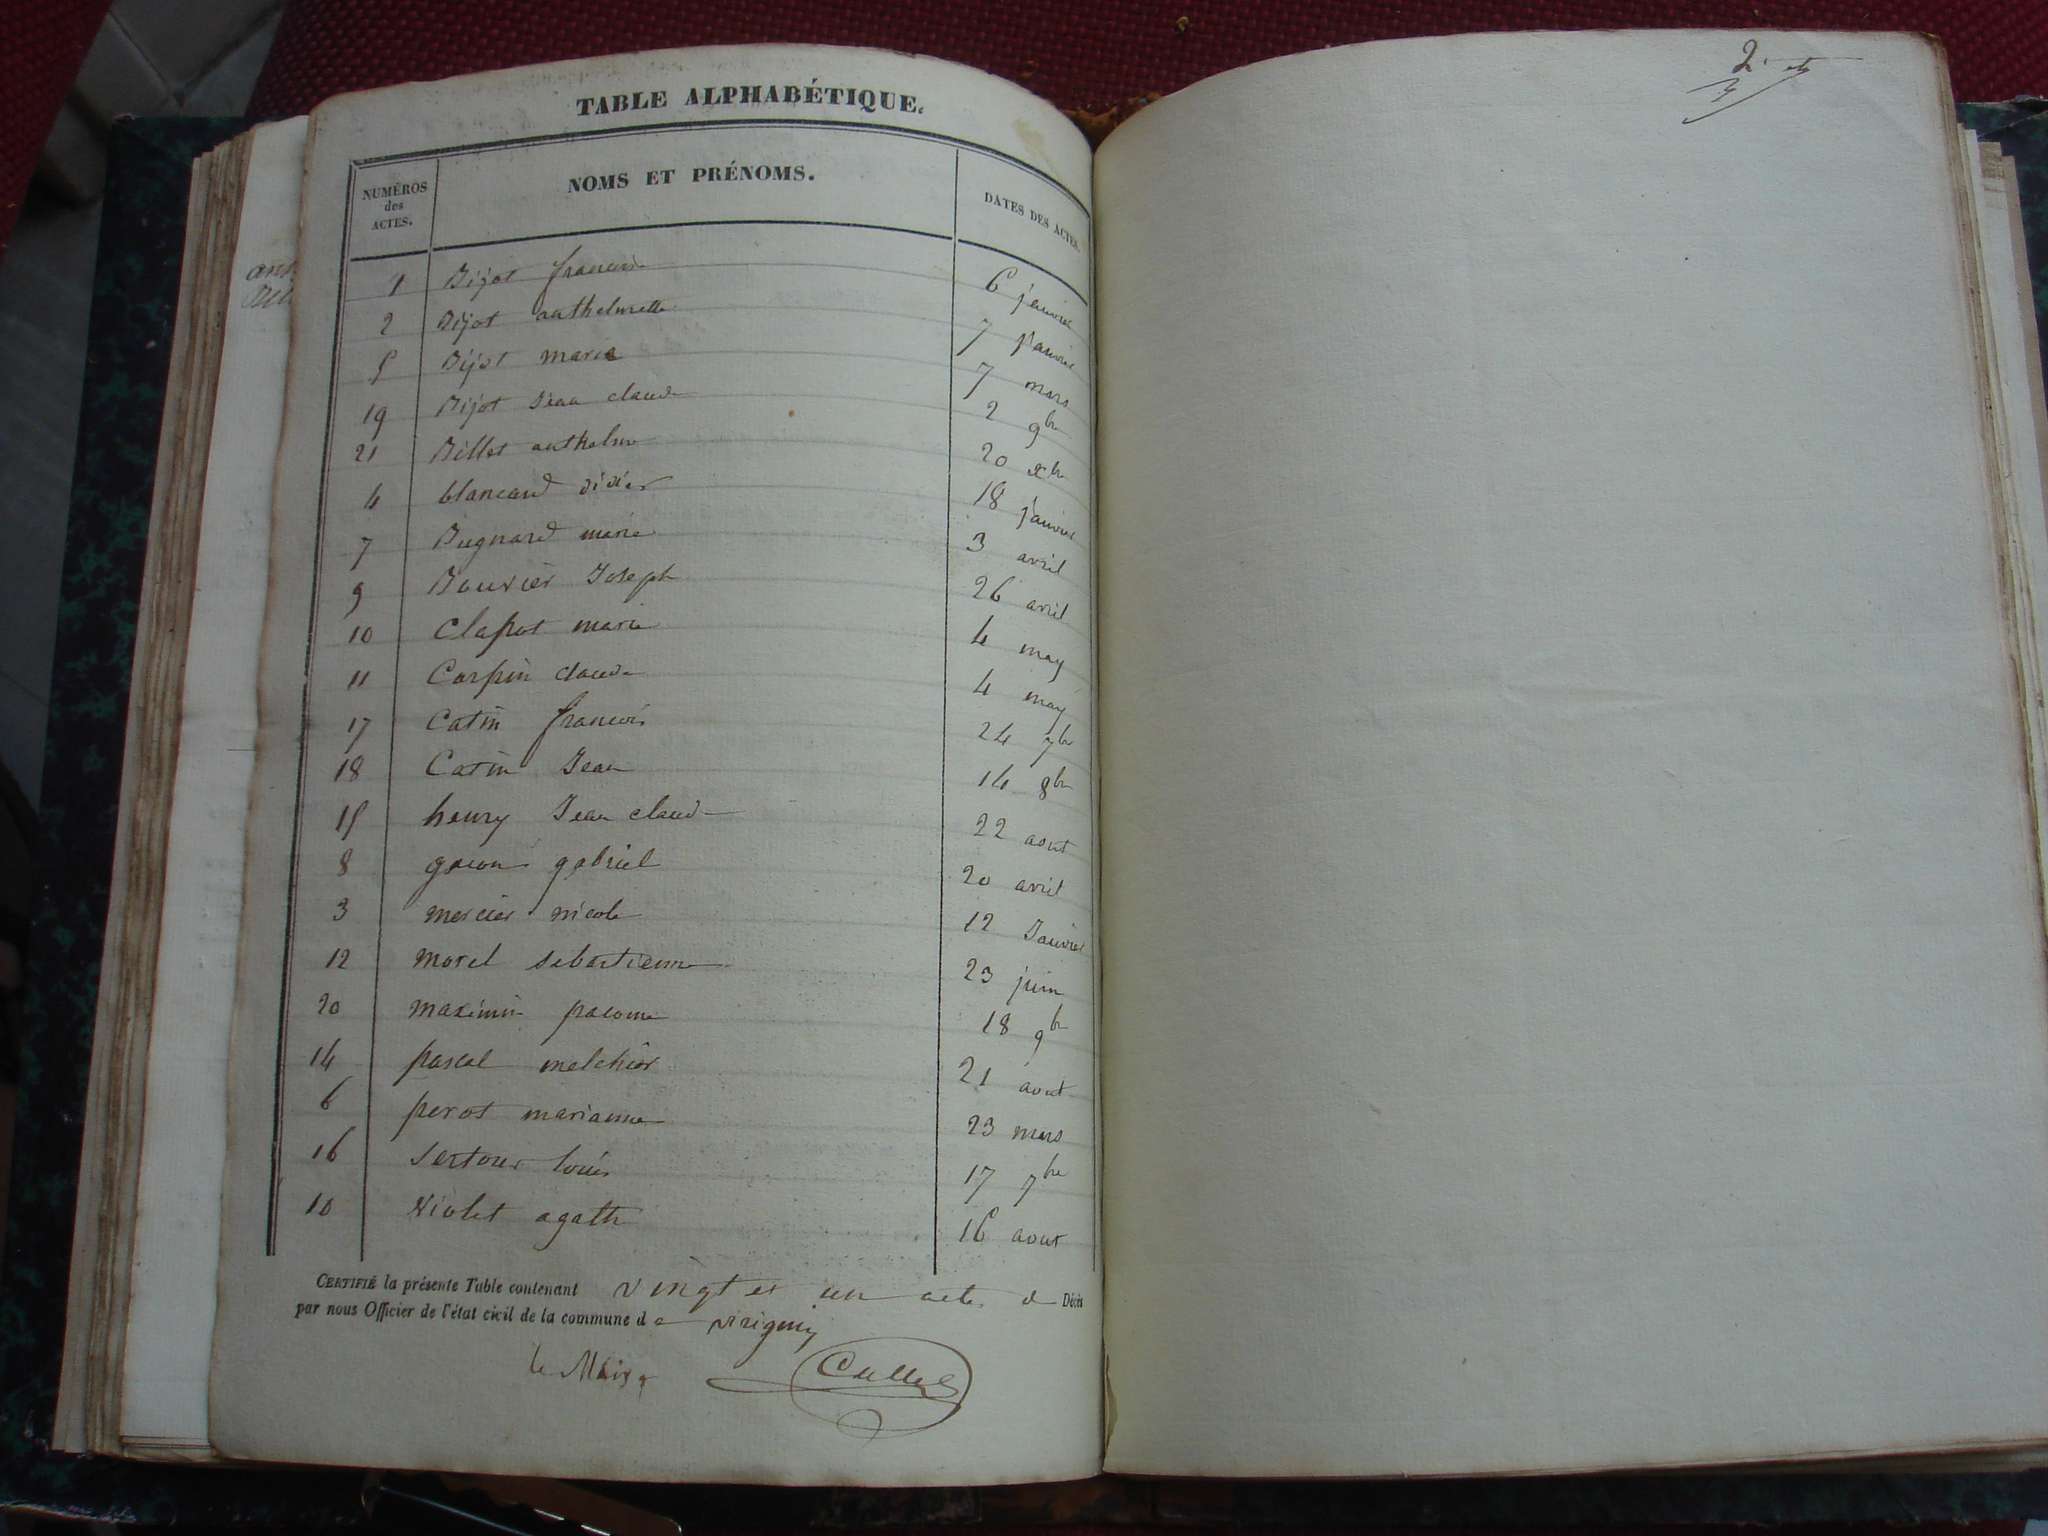 TABLE ALPHABÉTIQUE.
NUMÉROS des ACTES. NOMS ET PRÉNOMS. DATES DES ACTES.
1 Bijot francois 6 janvier
2 Bijot anthelmette 7 janvier
5 Bijot marie 7 mars
19 Bijot Jean claude 2 9bre
21 Billet anthelme 20 xbre
4 blancard didier 18 janvier
7 Bugnard marie 3 avril
9 Bouvier Joseph 26 avril
10 Clapot marie 4 may
11 Carpin claude 4 may
17 Catin francois 24 7bre
18 Catin Jean 14 8bre
15 henry Jean claude 22 aout
8 gacon gabriel 20 avril
3 mercier nicole 12 Janvier
12 morel sebastienne 23 juin
20 maximin pacome 18 9bre
14 pascal melchior 21 aout
6 perot marianne 23 mars
16 Sertour louis 17 7bre
10 Violet agathe 16 aout
CERTIFIÉ la présente Table contenant vingt et un actes de Décès
par nous Officier de l'état civil de la commune de virigniy
le Maire Cullet